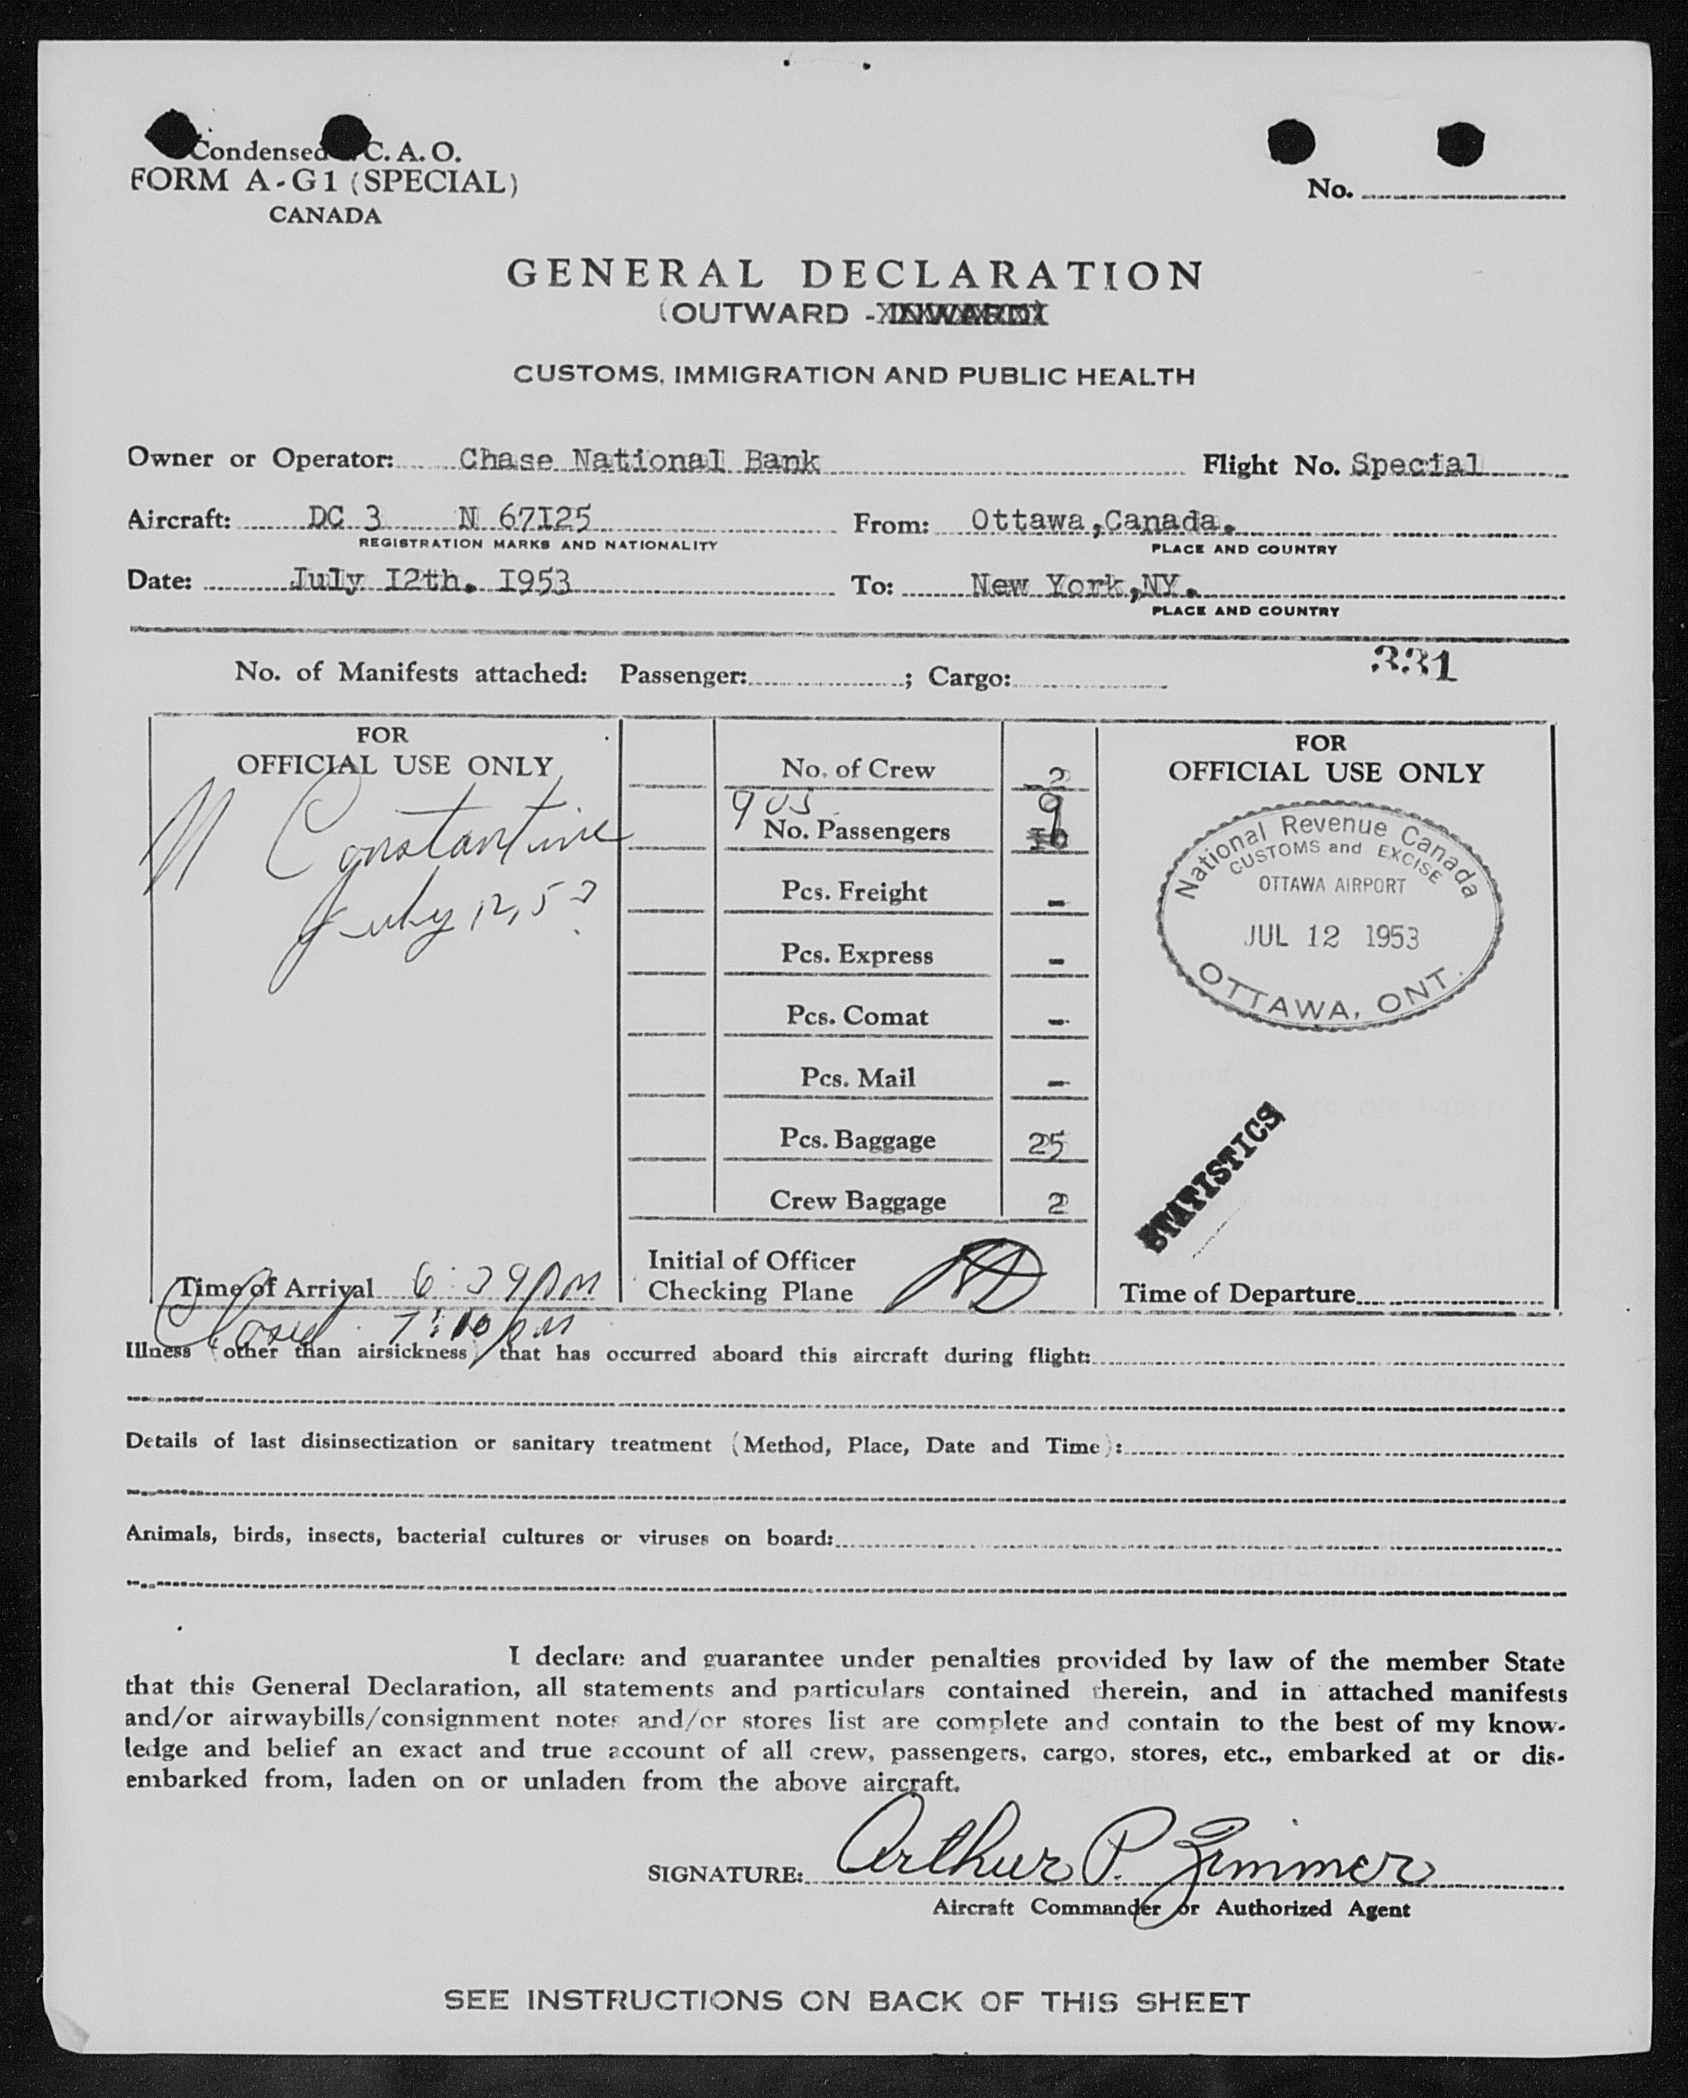 Condensed C. A. O.
FORM A-G1 (SPECIAL)
CANADA
No.
GENERAL DECLARATION
(OUTWARD - INWARD)
CUSTOMS, IMMIGRATION AND PUBLIC HEALTH
Owner or Operator: Chase National Bank Flight No. Special
Aircraft: DC 3 N 67I25 From: Ottawa,Canada.
REGISTRATION MARKS AND NATIONALITY PLACE AND COUNTRY
Date: July I2th. I953 To: New York,NY.
PLACE AND COUNTRY
No. of Manifests attached: Passenger: ; Cargo: 331
FOR
OFFICIAL USE ONLY
N Constantine
July 12, 53
Time of Arrival 6:39 PM
7:10 pm
No. of Crew 2
9 US
No. Passengers 9 I0
Pcs. Freight -
Pcs. Express -
Pcs. Comat -
Pcs. Mail -
Pcs. Baggage 25
Crew Baggage 2
Initial of Officer
Checking Plane
FOR
OFFICIAL USE ONLY
National Revenue Canada
CUSTOMS and EXCISE
OTTAWA AIRPORT
JUL 12 1953
OTTAWA, ONT.
STATISTICS
Time of Departure
Illness (other than airsickness) that has occurred aboard this aircraft during flight:
Details of last disinsectization or sanitary treatment (Method, Place, Date and Time):
Animals, birds, insects, bacterial cultures or viruses on board:
I declare and guarantee under penalties provided by law of the member State
that this General Declaration, all statements and particulars contained therein, and in attached manifests
and/or airwaybills/consignment notes and/or stores list are complete and contain to the best of my know-
ledge and belief an exact and true account of all crew, passengers, cargo, stores, etc., embarked at or dis-
embarked from, laden on or unladen from the above aircraft.
SIGNATURE: Arthur P. Zimmer
Aircraft Commander or Authorized Agent
SEE INSTRUCTIONS ON BACK OF THIS SHEET